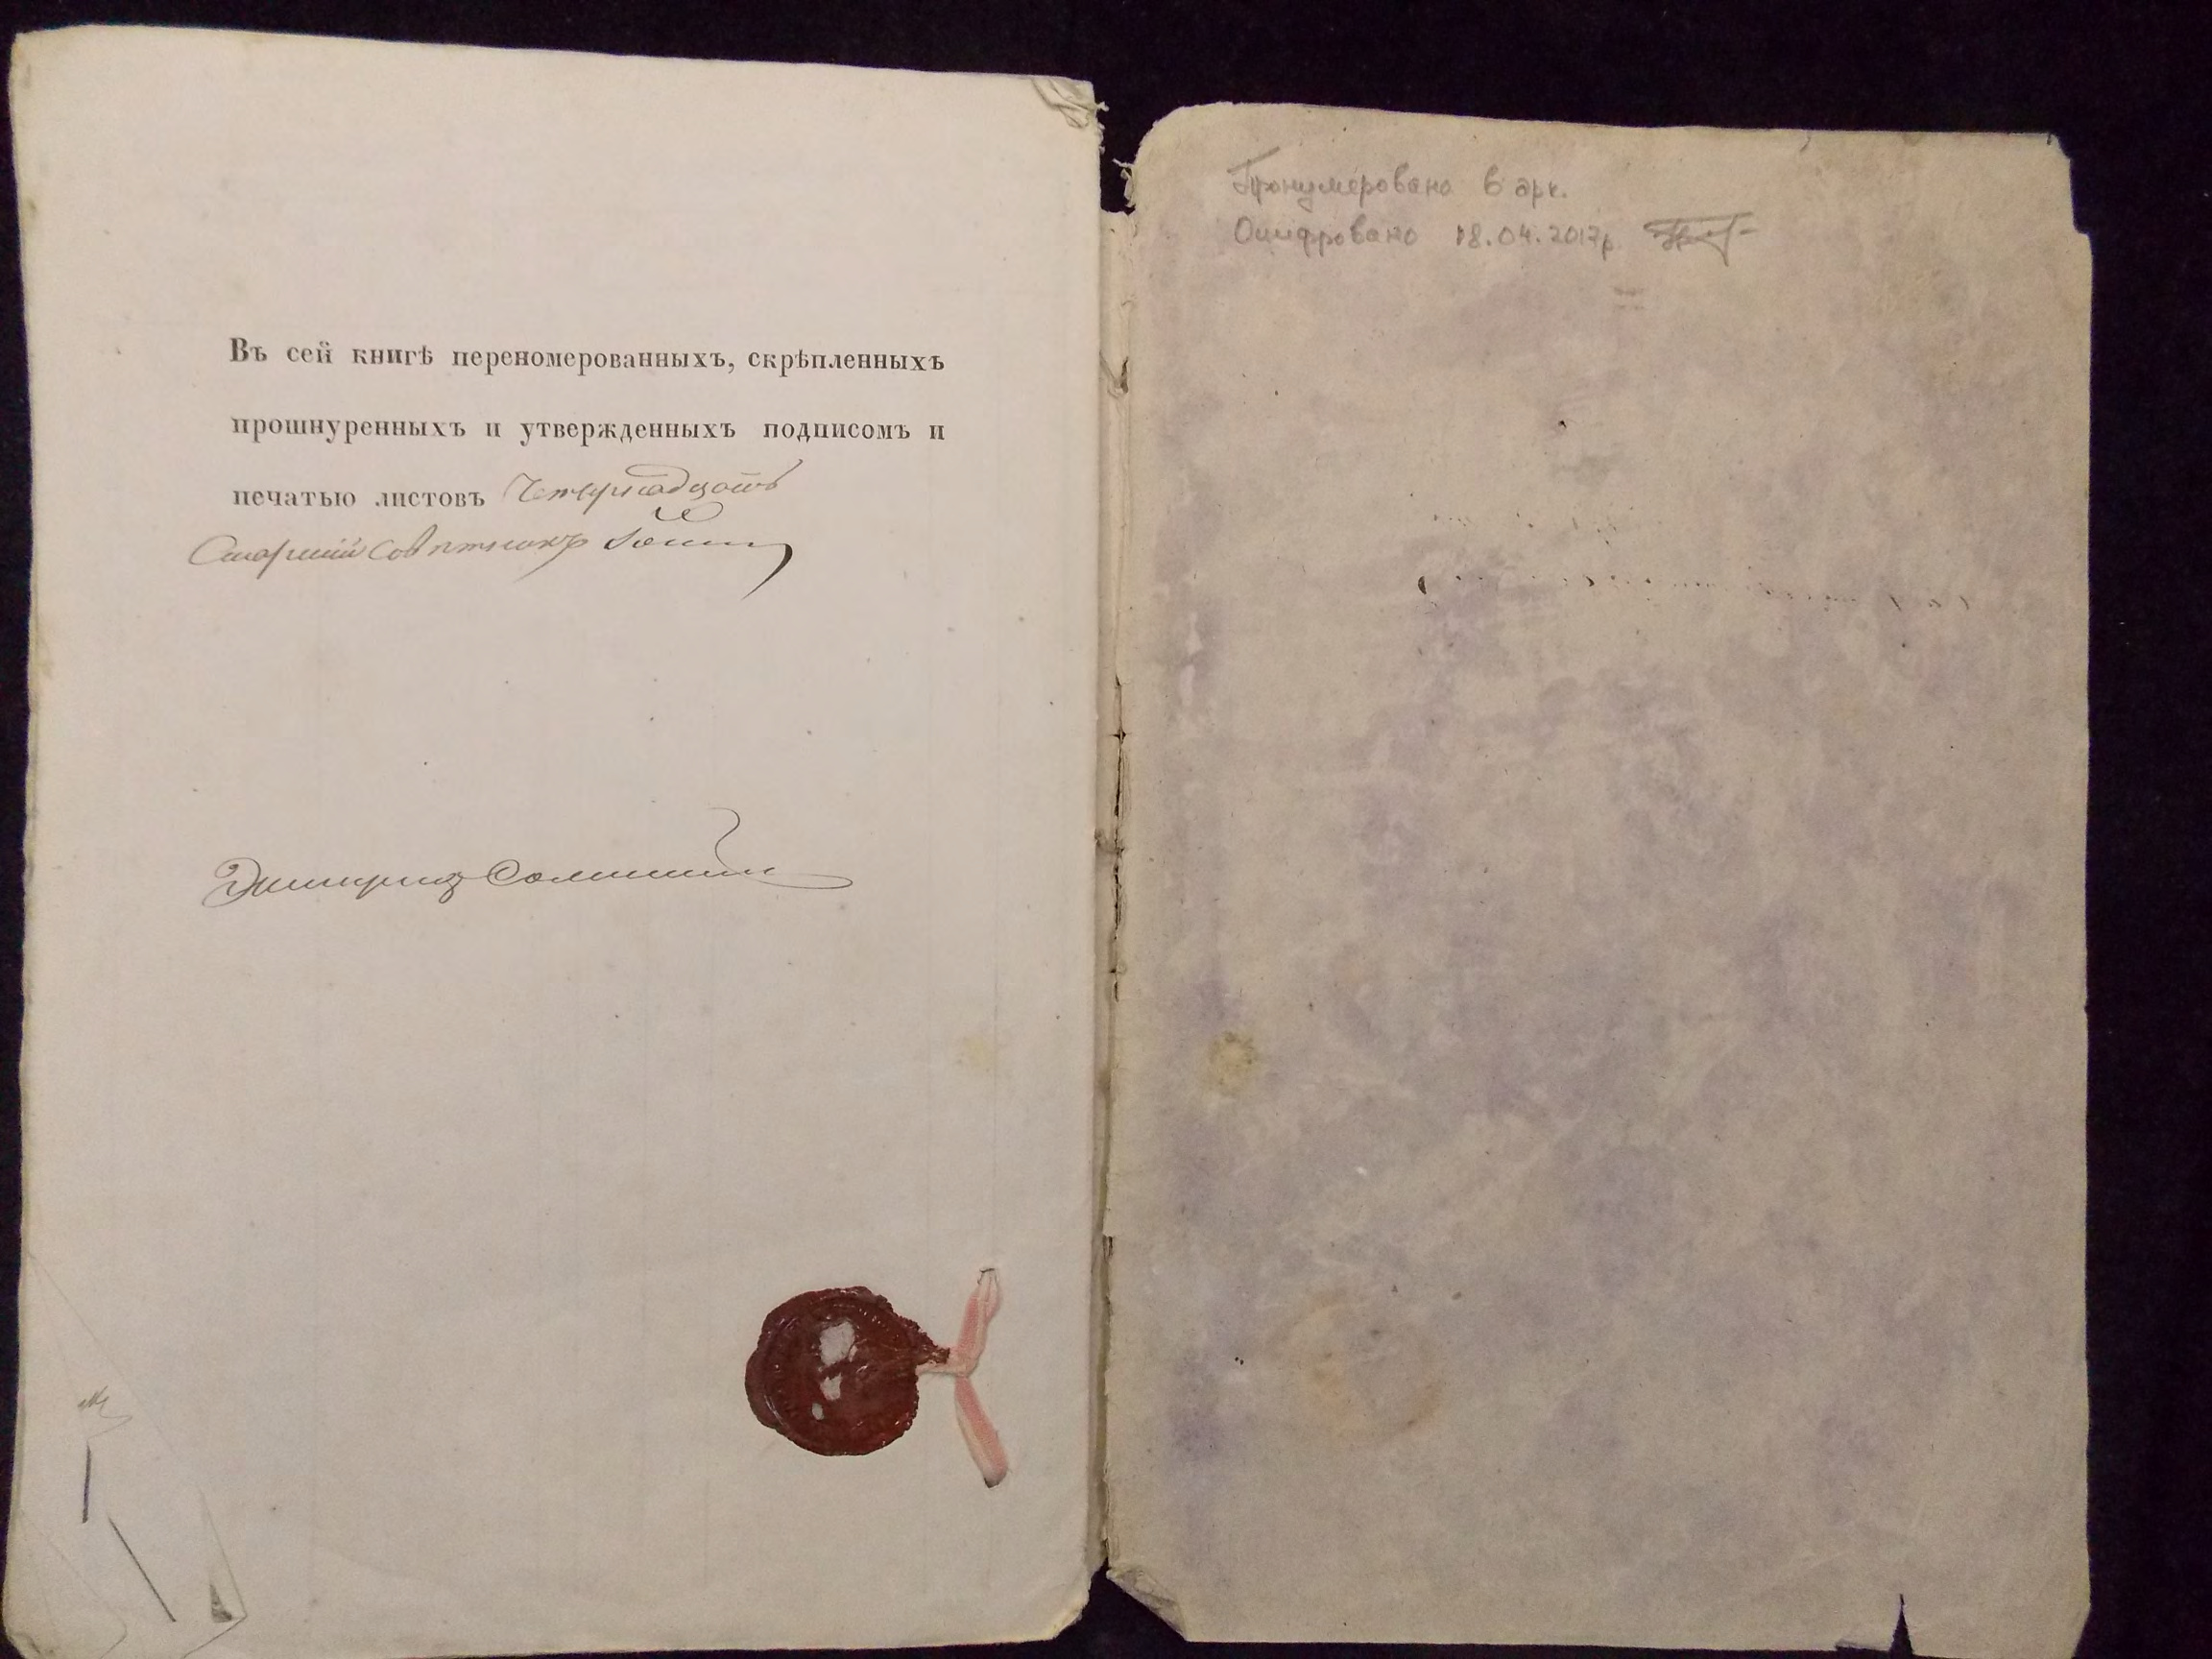 Въ сей книгѣ переномерованныхъ, скрѣпленныхъ
прошнуренныхъ и утвержденныхъ подписомъ и
печатью листовъ Четырнадцать
Старшій Совѣтникъ
Дмитрій
Пронумеровано 6 арк.
Оцифровано 18.04.2017р